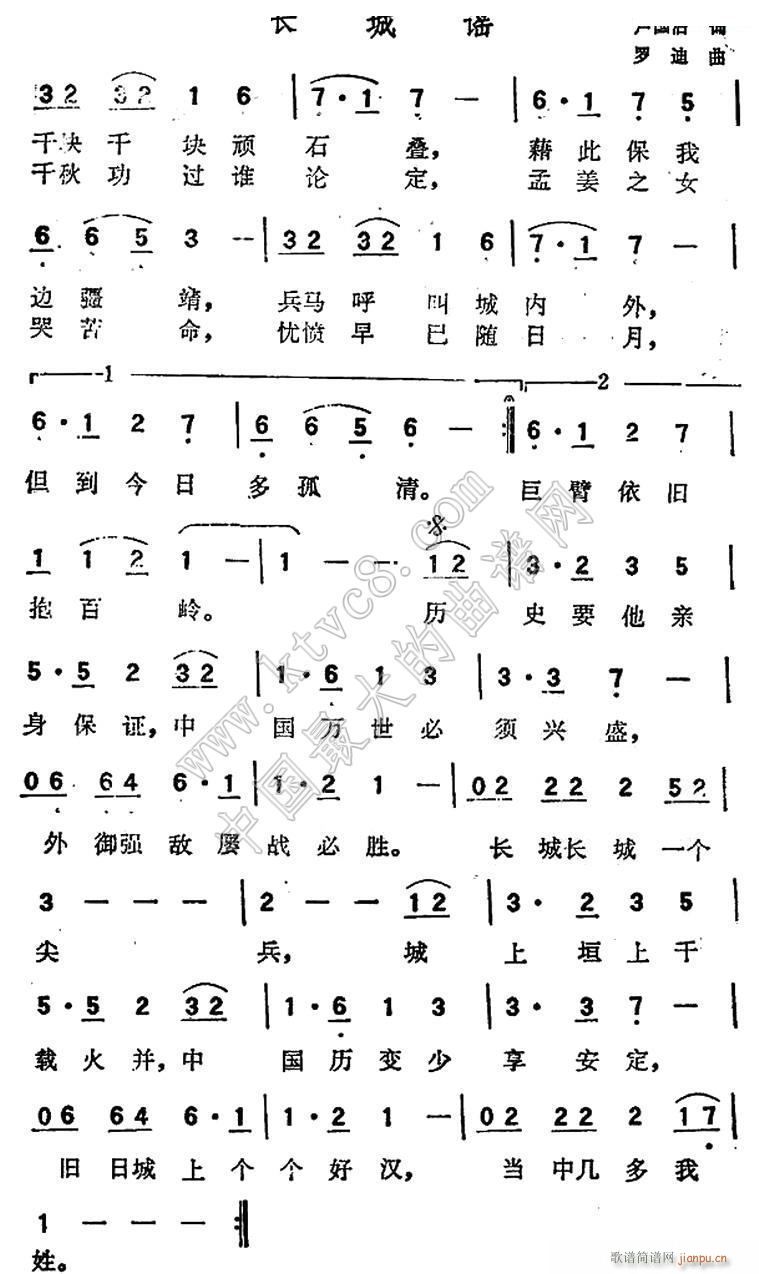 长城谣
罗迪曲
32 32 1 6 | 7·1 7 — | 6·1 7 5
千块千块顽石叠，藉此保我
千秋功过谁论定，孟姜之女
6 6 5 3 -- | 32 32 1 6 | 7·1 7 — |
边疆靖，兵马呼叫城内外，
哭苦命，忧愤早已随日月，
1 2
6·1 2 7 | 6 6 5 6 — :| 6·1 2 7 |
但到今日多孤清。巨臂依旧
1 1 2 1 — | 1 — — 12 | 3·2 3 5 |
抱百岭。历史要他亲
5·5 2 32 | 1·6 1 3 | 3·3 7 — |
身保证，中国万世必须兴盛，
06 64 6·1 | 1·2 1 — | 02 22 2 52 |
外御强敌屡战必胜。长城长城一个
3 — — — | 2 — — 12 | 3·2 3 5 |
尖兵，城上垣上千
5·5 2 32 | 1·6 1 3 | 3·3 7 — |
载火并，中国历变少享安定，
06 64 6·1 | 1·2 1 — | 02 22 2 17 |
旧日城上个个好汉，当中几多我
1 — — — :|
姓。
www.ktvc8.com
中国最大的曲谱网
歌谱简谱网
jianpu.cn